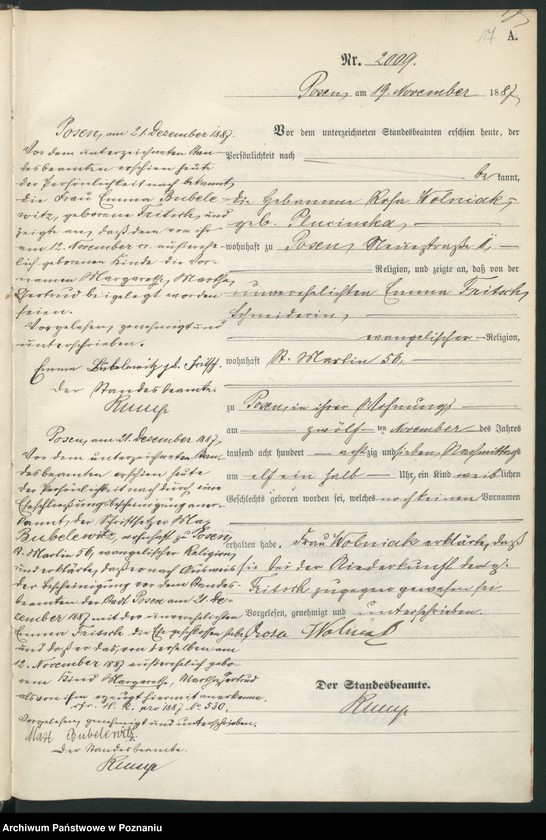 17
A.
Nr. 2009.
Posen, am 19. November 1887
Vor dem unterzeichneten Standesbeamten erschien heute, der
Persönlichkeit nach
be kannt,
die Hebamme Rosa Wolniak,
geb. Plucinska,
wohnhaft zu Posen,
Religion, und zeigte an, daß von der
unverehelichten Emma Fritsch,
Schneiderin,
evangelischer Religion,
wohnhaft St. Martin 56,
zu Posen, in ihrer Wohnung
am zwölften November des Jahres
tausend acht hundert achtzig und sieben, Nachmittags
um elf ein halb Uhr, ein Kind weiblichen
Geschlechts geboren worden sei, welches noch keinen Vornamen
erhalten habe. Frau Wolniak erklärte, daß
sie bei der Niederkunft der p.
Fritsch zugegen gewesen sei.
Vorgelesen, genehmigt und unterschrieben.
Rosa Wolniak
Der Standesbeamte.
Posen, am 21. Dezember 1887.
Vor dem unterzeichneten Stan-
desbeamten erschien heute
der Persönlichkeit nach bekannt,
die Frau Emma Bubele-
witz, geborene Fritsch, und
zeigte an, daß dem von ihr
am 12. November cr. außerehe-
lich geborenen Kinde die Vor-
namen Margarethe, Martha,
Gertrud beigelegt worden
seien.
Vorgelesen, genehmigt und
unterschrieben.
Emma Bubelewitz gb. Fritsch.
Der Standesbeamte.
Posen, am 21. Dezember 1887.
Vor dem unterzeichneten Stan-
desbeamten erschien heute
der Persönlichkeit nach durch eine
Eheschließungsbescheinigung aner-
kannt, der Schriftsetzer Max
Bubelewitz, wohnhaft zu Posen,
St. Martin 56, evangelischer Religion
und erklärte, daß er nach Ausweis
der Bescheinigung vor dem Standes-
beamten der Stadt Posen am 21. De-
zember 1887 mit der unverehelichten
Emma Fritsch die Ehe geschlossen habe,
und daß er das, von derselben am
12. November 1887 außerehelich gebo-
rene Kind Margarethe, Martha, Gertrud
als von ihm erzeugt hiermit anerkenne.
H. R. pro 1887 No 530.
Vorgelesen, genehmigt und unterschrieben.
Max Bubelewitz.
Der Standesbeamte.
Archiwum Państwowe w Poznaniu